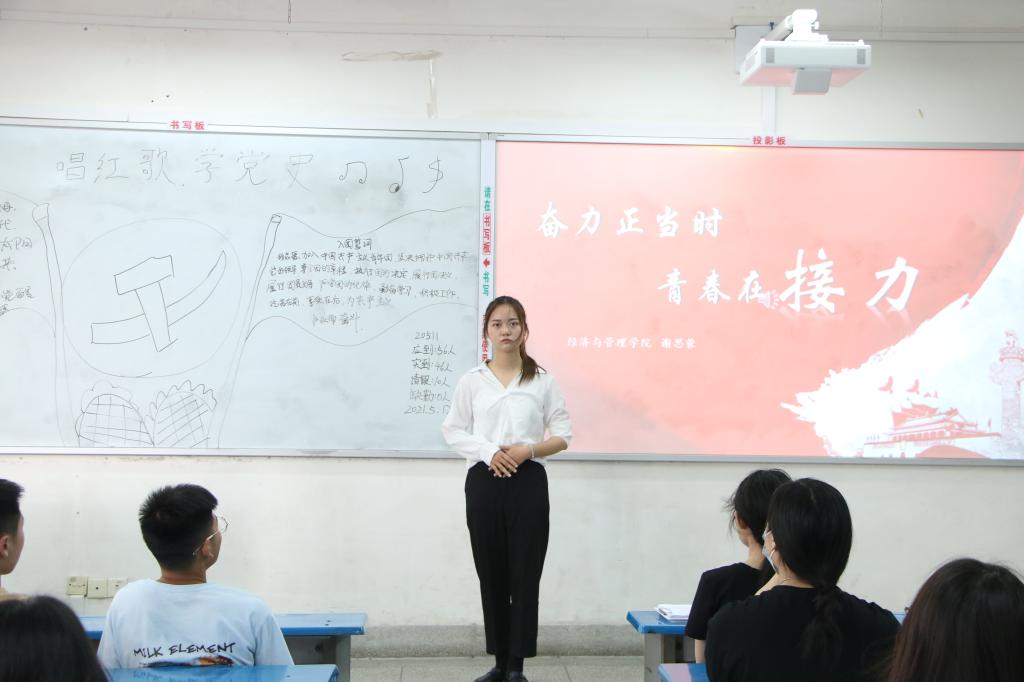 书写板
唱红歌.学党史
入团誓词
我志愿加入中国共产主义青年团,坚决拥护中国共产
党的领导,遵守团的章程,执行团的决议,履行团员义务,
严守团的纪律,勤奋学习,积极工作,
吃苦在前,享受在后,为共产主义
事业而奋斗.
20511
应到:56人
实到:46人
请假:10人
缺勤:0人
2021.5.1
请在书写板 书写
投影板
奋力正当时
青春在接力
经济与管理学院 谢思蒙
MILK ELEMENT